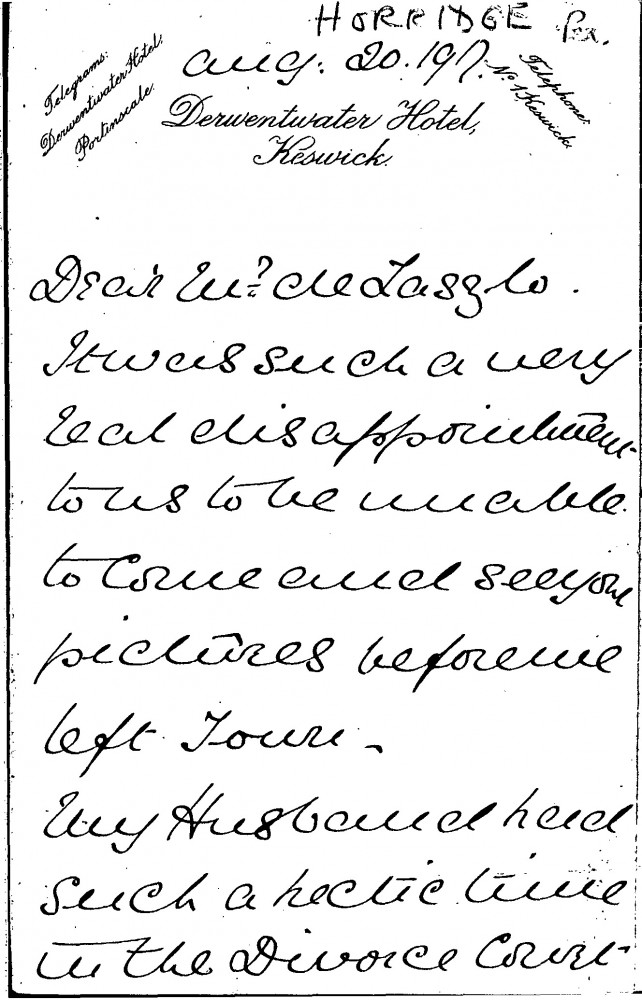 HORRIDGE
Aug: 20. 1917.
Telegrams:
Derwentwater Hotel,
Portinscale.
Telephone:
No 1 Keswick.
Derwentwater Hotel,
Keswick.
Dear Mr. de Laszlo.
It was such a very
real disappointment
to us to be unable
to come and see your
pictures before we
left Town -
My Husband had
such a hectic time
in the Divorce Court